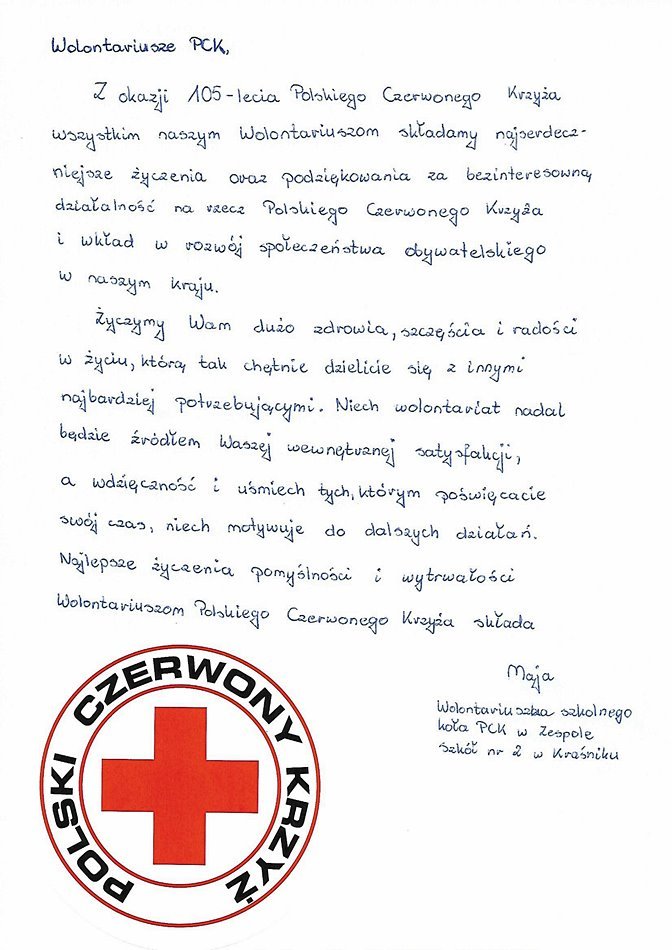 Wolontariusze PCK,
Z okazji 105-lecia Polskiego Czerwonego Krzyża
wszystkim naszym Wolontariuszom składamy najserdecz-
niejsze życzenia oraz podziękowania za bezinteresowną
działalność na rzecz Polskiego Czerwonego Krzyża
i wkład w rozwój społeczeństwa obywatelskiego
w naszym kraju.
Życzymy Wam dużo zdrowia, szczęścia i radości
w życiu, którą tak chętnie dzielicie się z innymi
najbardziej potrzebującymi. Niech wolontariat nadal
będzie źródłem Waszej wewnętrznej satysfakcji,
a wdzięczność i uśmiech tych, którym poświęcacie
swój czas, niech motywuje do dalszych działań.
Najlepsze życzenia pomyślności i wytrwałości
Wolontariuszom Polskiego Czerwonego Krzyża składa
Maja
Wolontariuszka szkolnego
koła PCK w Zespole
Szkół nr 2 w Kraśniku
POLSKI CZERWONY KRZYŻ